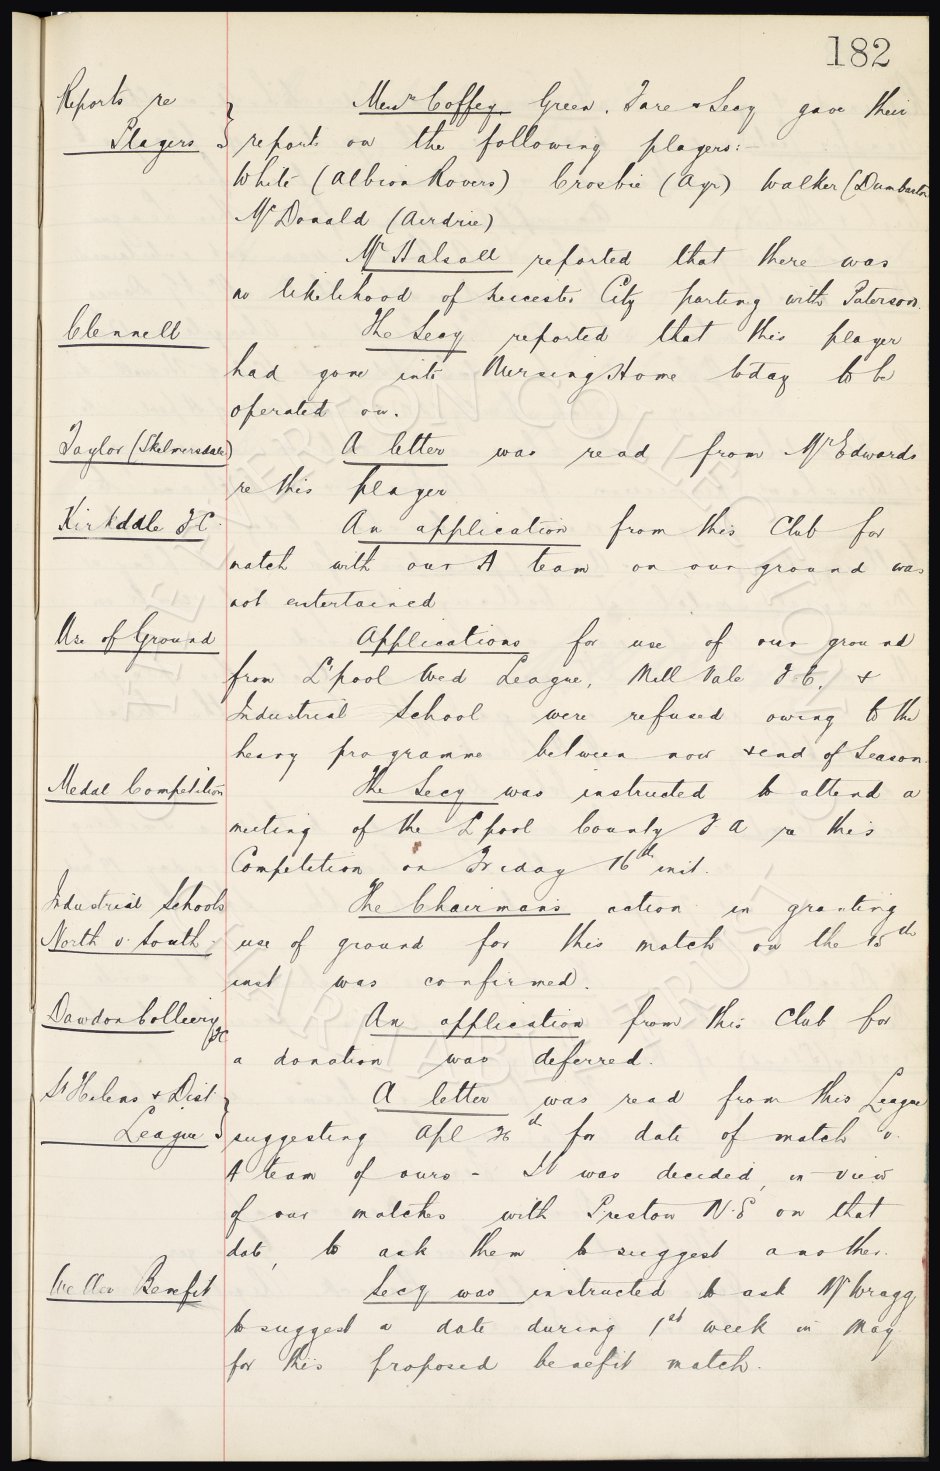 182
Reports re
Players
Messrs Coffey, Green, Tare & Secy gave their
reports on the following players:-
White (Albion Rovers) Crosbie (Ayr) Walker (Dumbarton
McDonald (Airdrie)
Mr Halsall reported that there was
no likelihood of Leicester City parting with Paterson.
Clennell
The Secy reported that this player
had gone into Nursing Home today to be
operated on.
Taylor (Skelmersdale)
A letter was read from Mr Edwards
re this player
Kirkdale F.C.
An application from this Club for
match with our A team on our ground was
not entertained
Use of Ground
Applications for use of our ground
from L'pool Wed League, Mill Vale F.C. &
Industrial School were refused owing to the
heavy programme between now & end of Season.
Medal Competition
The Secy was instructed to attend a
meeting of the L'pool County F A re this
Competition on Friday 16th inst.
Industrial Schools
North v. South
The Chairman's action in granting
use of ground for this match on the 15th
inst was confirmed.
Dawdon Colliery FC
An application from this Club for
a donation was deferred.
St Helens & Dist
League
A letter was read from this League
suggesting Apl 26th for date of match v.
A team of ours - It was decided, in view
of our matches with Preston N.E on that
date, to ask them to suggest another.
Weller Benefit
Secy was instructed to ask Mr Wragg
to suggest a date during 1st week in May
for this proposed benefit match.